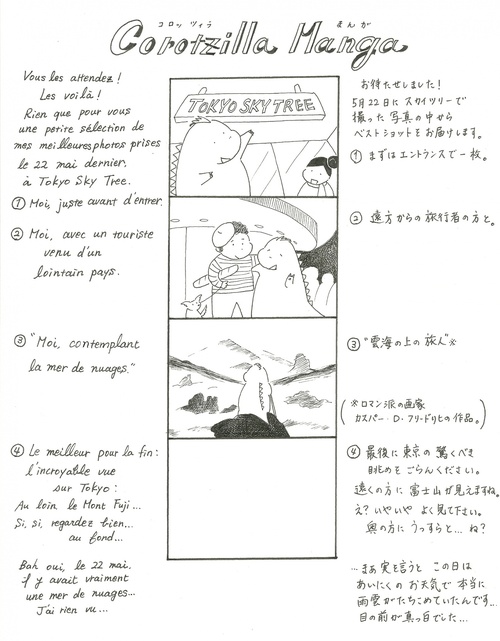 コロッ ツィラ まんが
Corotzilla Manga
Vous les attendez !
Les voilà !
Rien que pour vous
une petite sélection de
mes meilleures photos prises
le 22 mai dernier.
à Tokyo Sky Tree.
① Moi, juste avant d'entrer.
② Moi, avec un touriste
venu d'un
lointain pays.
③ "Moi, contemplant
la mer de nuages."
④ Le meilleur pour la fin :
l'incroyable vue
sur Tokyo :
Au loin le Mont Fuji...
Si, si, regardez bien...
au fond...
Bah oui, le 22 mai.
il y avait vraiment
une mer de nuages...
J'ai rien vu...
TOKYO SKY TREE
お待たせしました!
5月22日に スカイツリーで
撮った 写真の中から
ベストショットをお届けします。
① まずはエントランスで一枚。
② 遠方からの旅行者の方と。
③ "雲海の上の旅人"※
(※ロマン派の画家
カスパー・D・フリードリヒの作品。)
④ 最後に東京の驚くべき
眺めをごらんください。
遠くの方に富士山が見えますね。
え? いやいや よく見て下さい。
奥の方に うっすらと… ね?
…まぁ 実を言うと この日は
あいにくの お天気で 本当に
雨雲がたちこめていたんです…
目の前が真っ白でした…